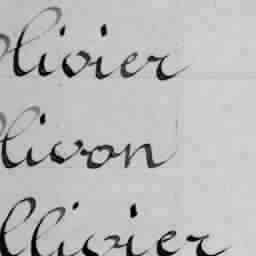 Olivier
Olivon
Ollivier